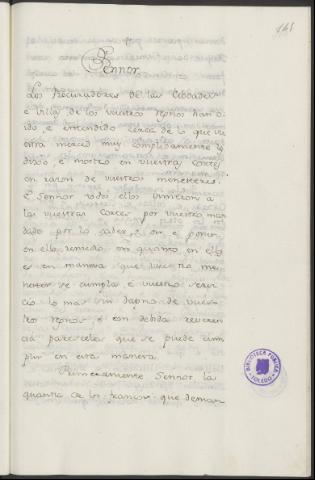 141
Sennor
Los Procuradores de las Cibdades
e Villas de los vuestros regnos han o-
ido, e entendido cerca de lo que vu
estra merced muy complidamente les
dixo e mostró en vuestras Cortes
en razon de vuestros menesteres.
E Sennor todos ellos vinieron a
las vuestras Cortes por vuestro man
dado por lo saber, e oir, e poner
en ello remedio en quanto en ellos
es en manera que vuestro me-
nester se cumpla e vuestro servi-
cio lo mas sin dapno de vues-
tros regnos e con debida reveren
cia pareceles que se puede cum
plir en esta manera.
Primeramente Sennor la
quantia de los francos que deman
BIBLIOTECA PUBLICA
TOLEDO